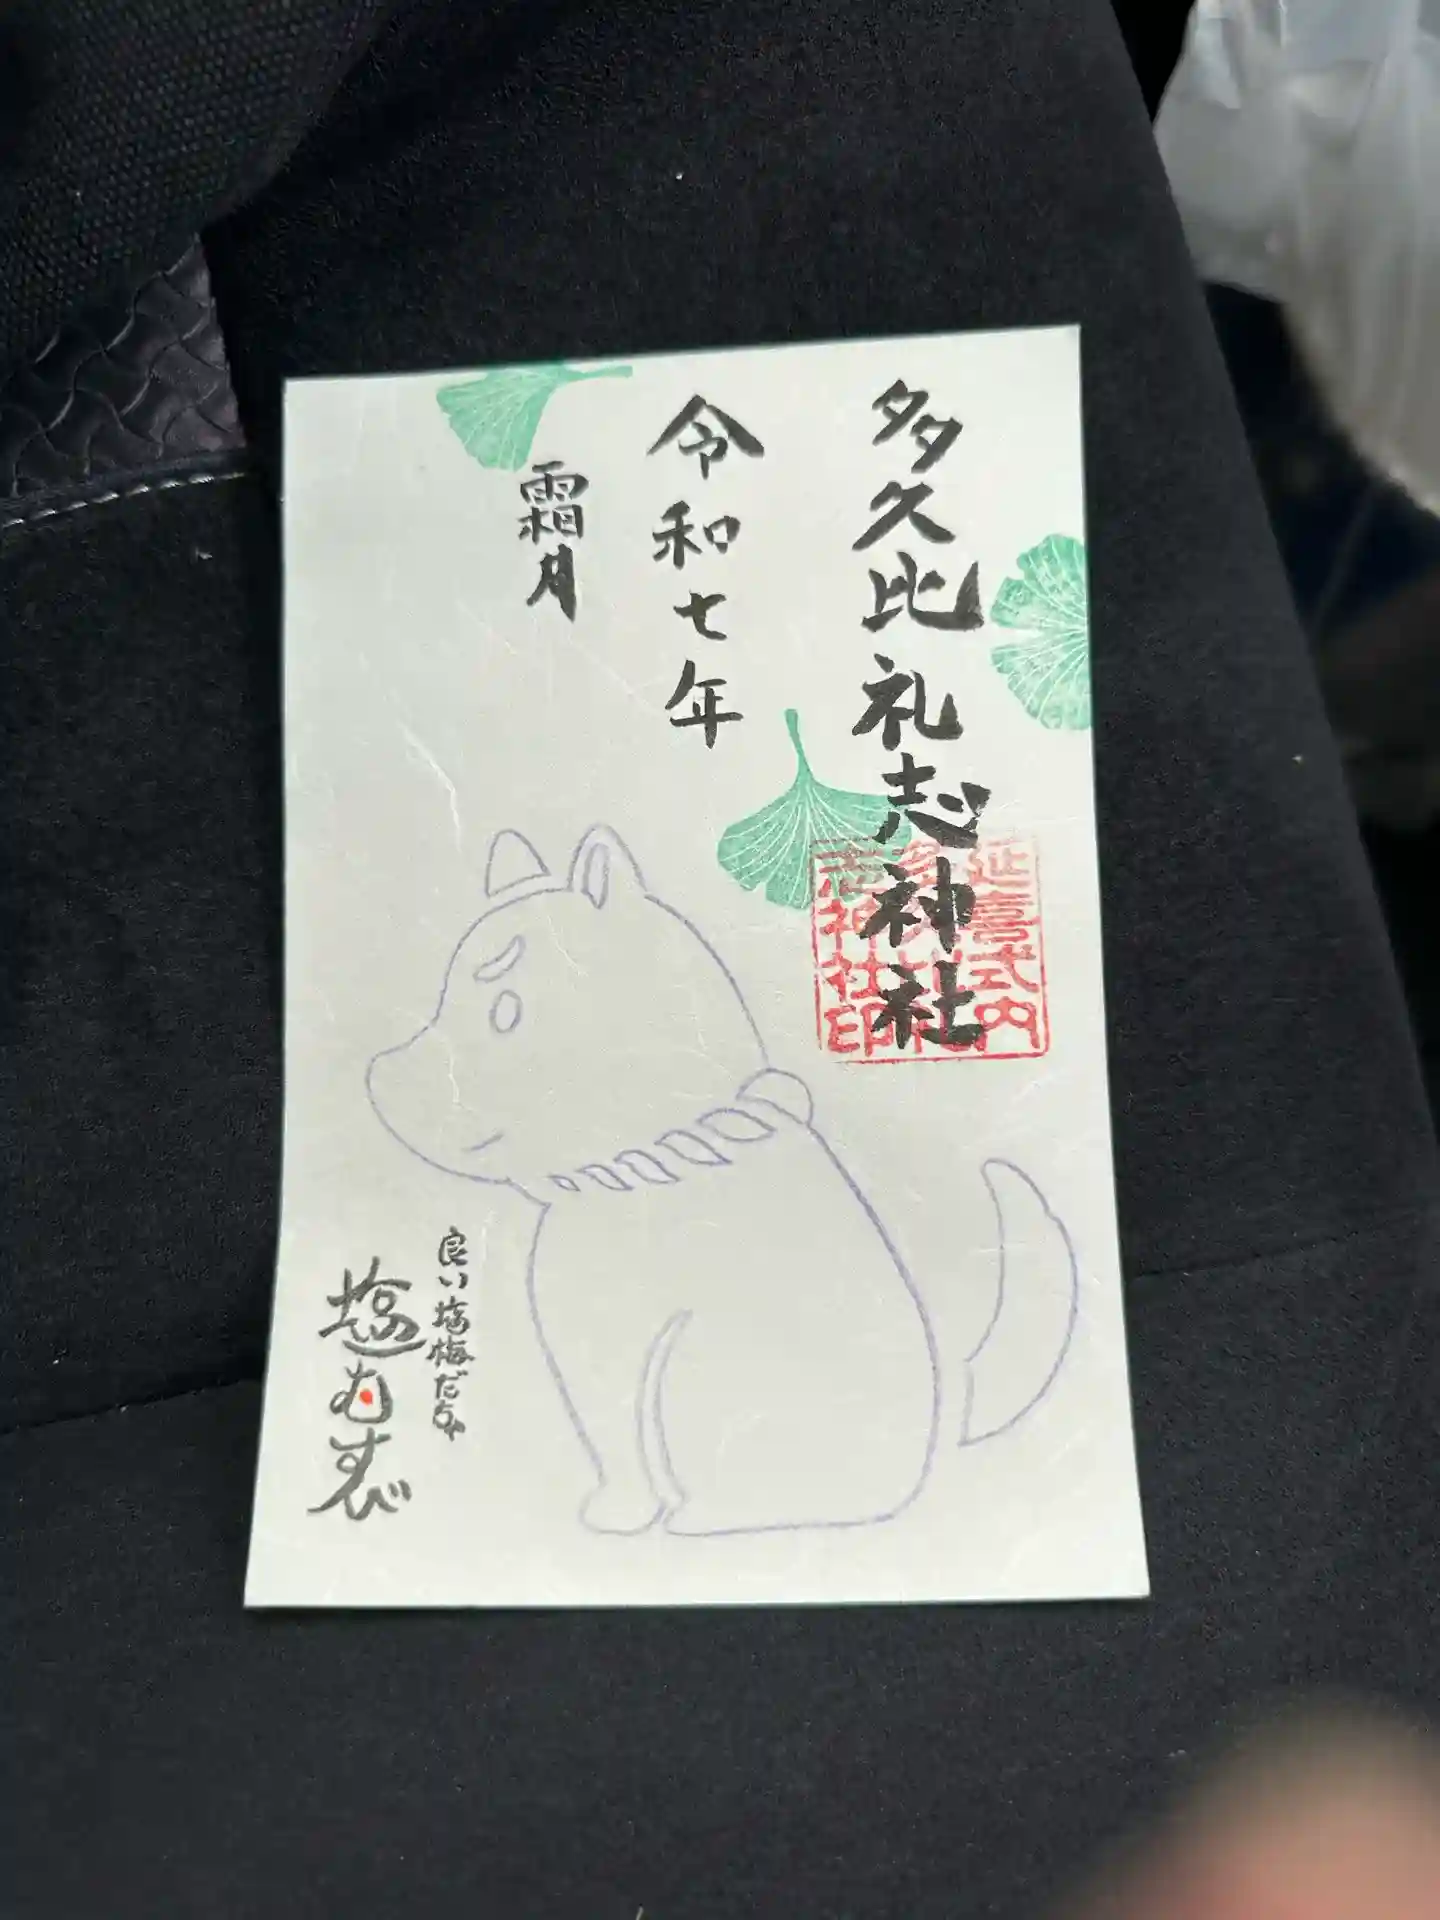 多久比礼志神社
延喜式内
志神社印
令和七年
霜月
良い塩梅だちゃ
塩むすび